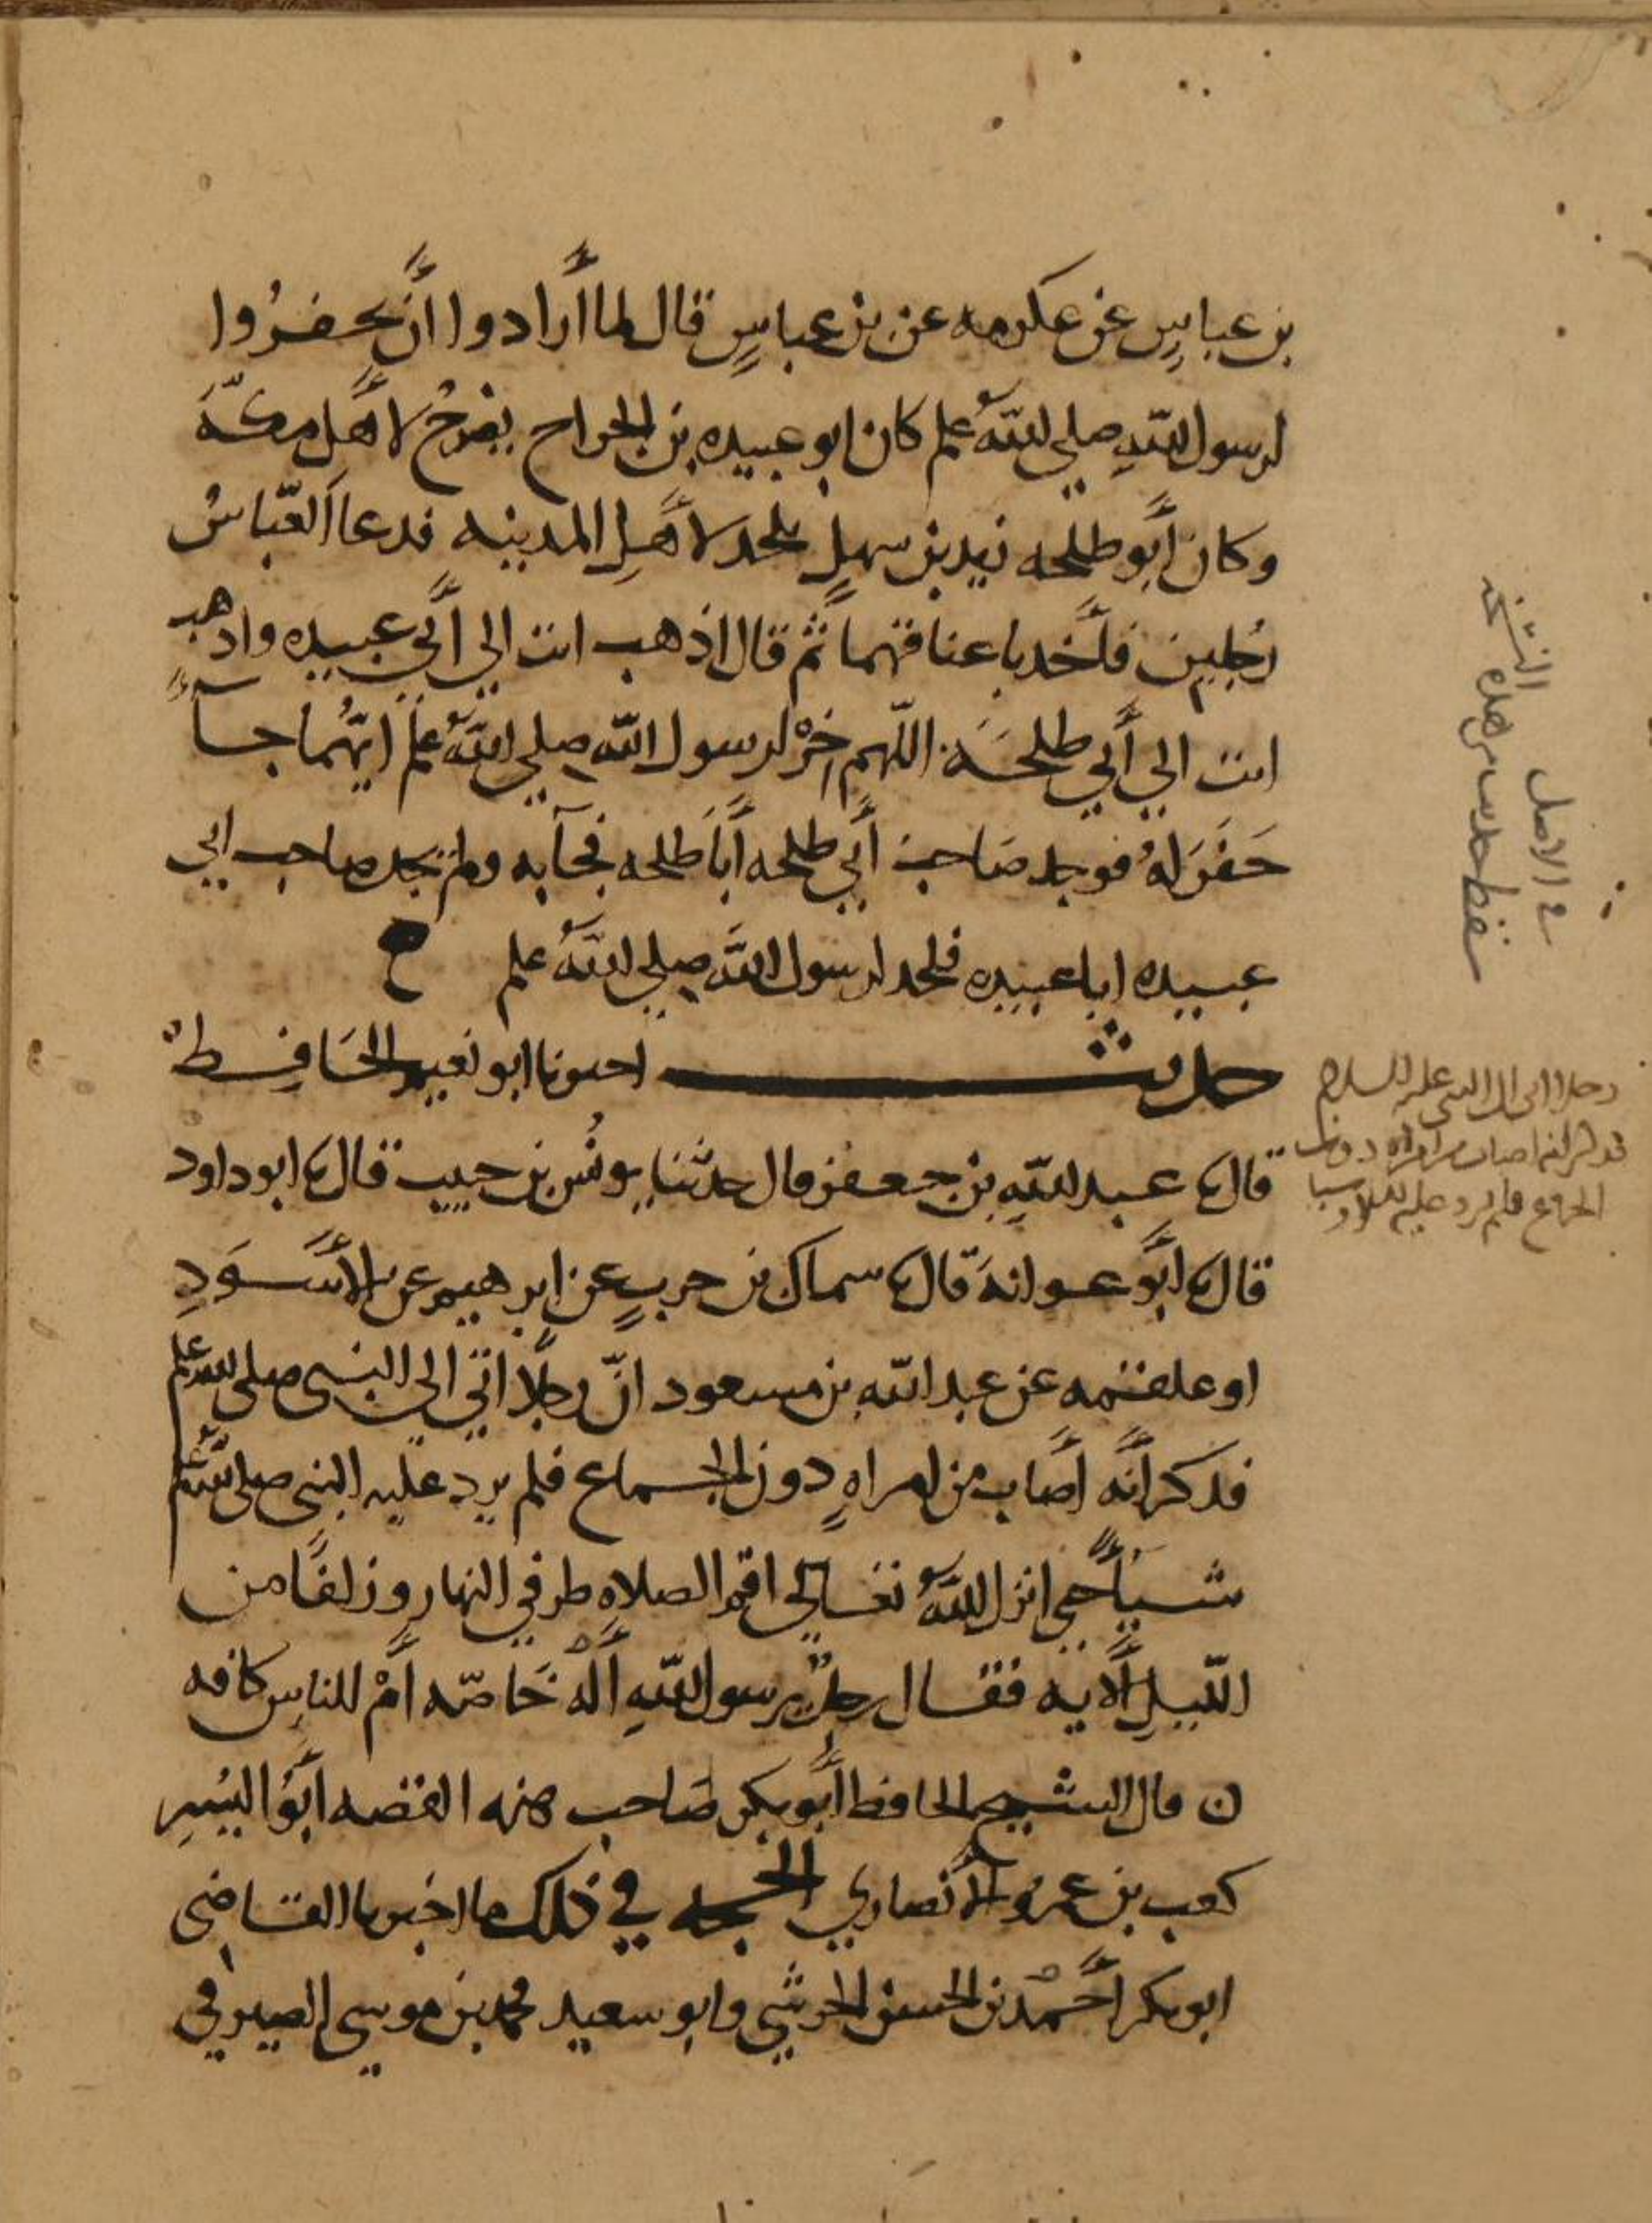 بن عباسٍ عن عكرمه عن بن عباسٍ قال لما أرادوا أن يحفرُوا
لرسول اللهِ صلى اللهُ علم كان ابو عبيده بن الجراح يضرحُ لأهل مكّةَ
وكان أبو طلحه زيد بن سهلٍ يلحد لأهلِ المدينه فدعا العبّاسُ
رجلين فأخد باعناقهما ثم قال اذهب انت الى أبي عبيده واذهب
انت الي أبي طلحَه اللّهم خِرْ لرسول الله صلي اللهُ علم ايّهُما جآء
حَفَرَ لهُ فوجد صَاحبُ أبي طلحه أبَا طَلحه فجآ به ولم يجد صاحب ابي
عبيده ابا عبيده فلحد لرسول اللهَ صلي اللهُ علم ح
حديث اخبرنا ابو نعيم الحَافِظُ
قال نا عبد اللهِ بن جعفر قال حدثنا يونُس بن حبيب قال نا ابو داود
قال نا ابو عوانهَ قال نا سماك بن حربٍ عن ابرهيم عن الأسَوَدِ
او علقمه عن عبد الله بن مسعود انّ رجلًا اتي الي النبي صلى الله علم
فذكر أنّه أصَاب من امراهٍ دون الجماع فلم يرد عليه النبي صلى الله علم
شيئًا حتي انزل اللهُ تعالي اقم الصلاه طرفي النهار وزلفًا من
اللّيلِ الأيه فقال رجلٌ يرسول اللهِ ألَهُ خَاصّه أمْ للناسِ كافه
ن قال الشيخ الحافظ أبو بكر صَاحب هذه القصه ابَوُ اليُسرِ
كعب بن عمرو الأنصاري الحجه في ذلك ما اخبرنا القاضي
ابو بكر أحْمدُ بن الحسن الحرشي وابو سعيد محمد بن موسي الصيرفي
في الاصل
سقط حديث من هذه النسخه
رجلا اتى الى النبي عليه السلام
فذكر انه اصاب من امراه دون
الجماع فلم يرد عليه